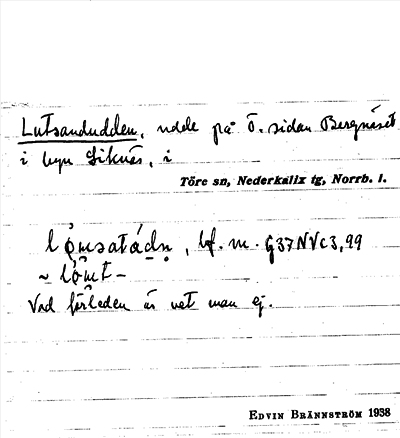 Lutsandudden, udde på Ö. sidan Bergnäset
i byn Siknäs, i
Töre sn, Nederkalix tg, Norrb. l.
bf. m. G37NVc3,99
Vad förleden är vet man ej.
EDVIN BRÄNNSTRÖM 1938